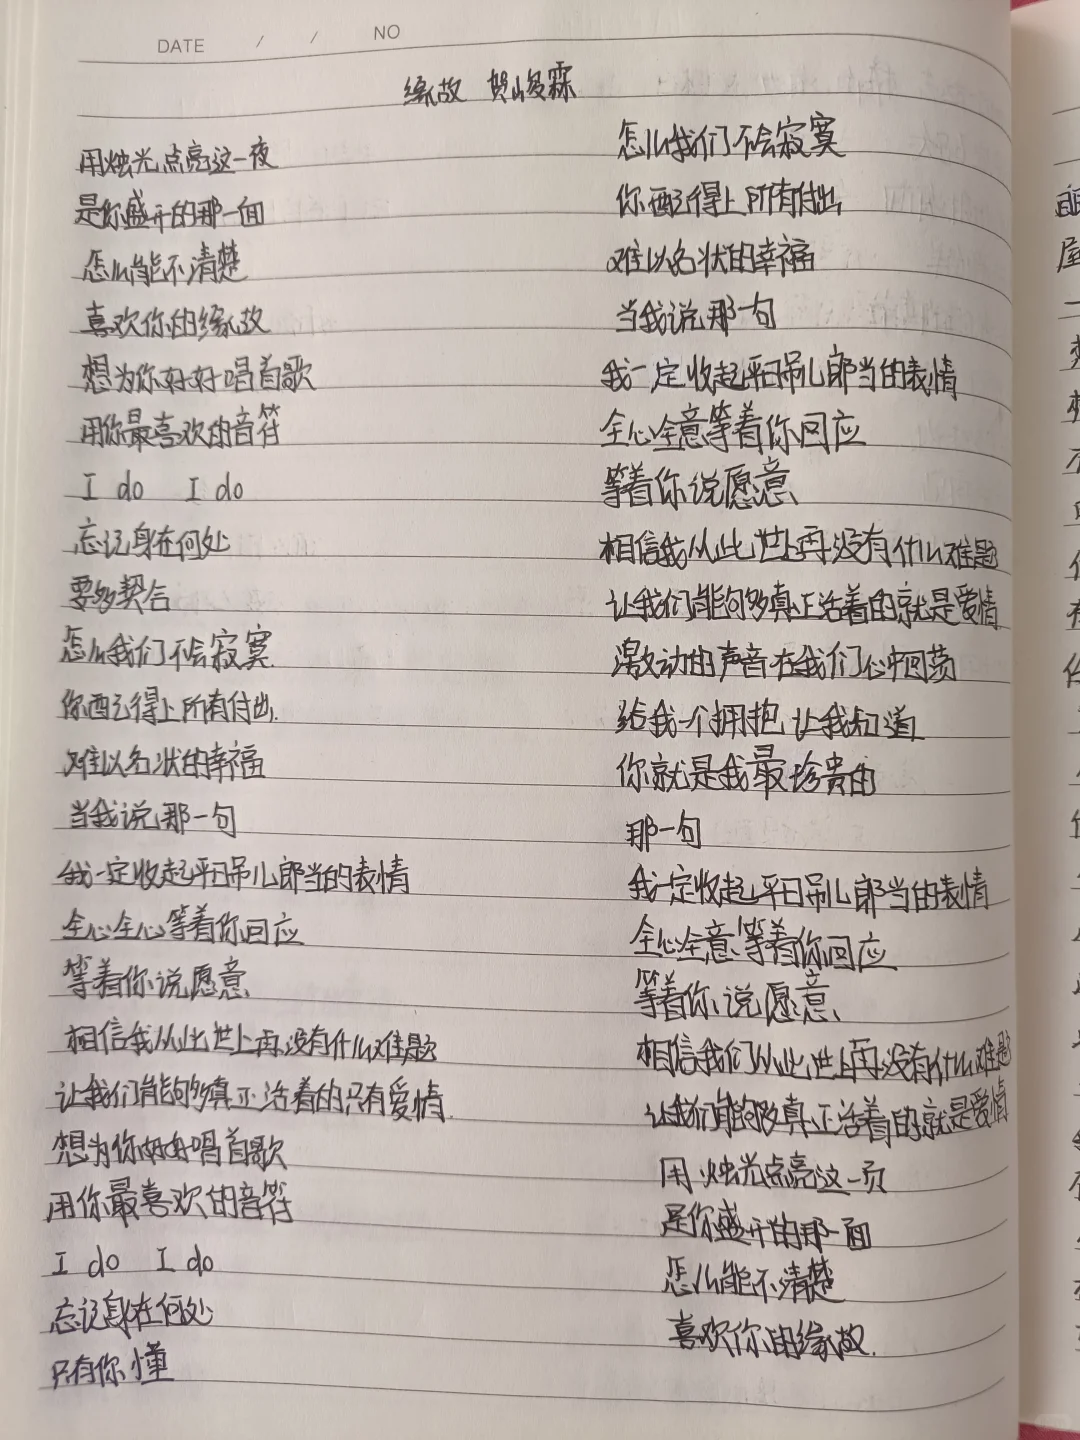 DATE / / NO
缘故 贺峻霖
用烛光点亮这一夜
是你盛开的那一面
怎么能不清楚
喜欢你的缘故
想为你好好唱首歌
用你最喜欢的音符
I do I do
忘记身在何处
要多契合
怎么我们不会寂寞
你配已得上所有付出.
难以名状的幸福
当我说那一句
我一定收起平日吊儿郎当的表情
全心全心等着你回应
等着你说愿意
相信我从此世上再没有什么难题
让我们能够多真正活着的只有爱情
想为你好好唱首歌
用你最喜欢的音符
I do I do
忘记身在何处
只有你懂
怎么我们不会寂寞
你配已得上所有付出
难以名状的幸福
当我说那一句
我一定收起平日吊儿郎当的表情
全心全意等着你回应
等着你说愿意
相信我从此世上再没有什么难题
让我们能够多真正活着的就是爱情
激动的声音在我们心中回荡
给我一个拥抱让我知道
你就是我最珍贵的
那一句
我一定收起平日吊儿郎当的表情
全心全意等着你回应
等着你说愿意
相信我们从此世上再没有什么难题
让我们能够多真正活着的就是爱情
用烛光点亮这一页
是你盛开的那一面
怎么能不清楚
喜欢你的缘故.